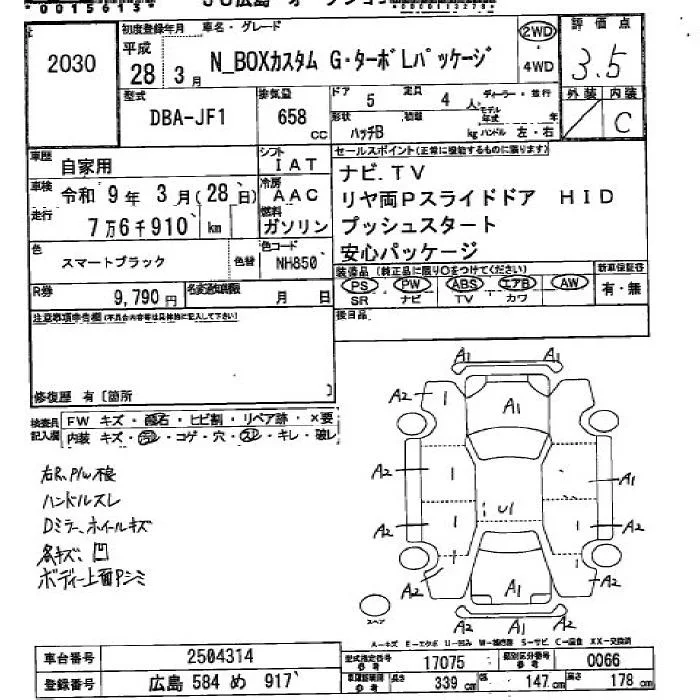 2030
初度登録年月 車名・グレード
平成 28年 3月 N_BOXカスタム G・ターボLパッケージ
2WD
・
4WD
評価点
3.5
外装 内装
C
型式
DBA-JF1
排気量
658 cc
ドア 5 定員 4人
ディーラー・並行
モデル年式 年
形状 ハッチB 積載 kg ハンドル 左・右
車歴 自家用
シフト IAT
車検 令和 9年 3月(28日)
冷房 AAC
走行 7万6千910 km
燃料 ガソリン
色 スマートブラック 色替
色コード NH850
R券 9,790円 名変期限 月 日
セールスポイント(正常に機能するものに限ります)
ナビ.TV
リヤ両Pスライドドア HID
プッシュスタート
安心パッケージ
装備品(純正品に限り○をつけてください) 新車保証書
PS PW ABS エアB AW 有・無
SR ナビ TV カワ
後日品
注意事項申告欄(不具合内容等は具体的に記入して下さい)
修復歴 有〔箇所 〕
検査員記入欄
FW キズ・飛石・ヒビ割・リペア跡・×要
内装 キズ・コゲ・穴・スレ・キレ・破レ
右R.P/W不良
ハンドルスレ
Dミラー、ホイールキズ
各キズ、凹
ボディー上面Pシミ
A1
A2 A1
A2 A2 A1
U1
A2 A2
A2 A1 A2
A2 A2
スペア
A-キズ E-エクボ U-凹み W-補修跡 S-サビ C-腐食 XX-交換済
車台番号 2504314
型式指定番号 参考 17075 類別区分番号 参考 0066
登録番号 広島 584 め 917
車両諸元 参考 長さ 339 cm 幅 147 cm 高さ 178 cm